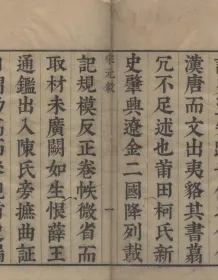 漢唐而文出夷貉其書蕪
冗不足述也莆田柯氏新
史肇興遼金二國降列載
宋元敘
一
記規模反正卷帙微省而
取材未廣闕如生恨薛王
通鑑出入陳氏旁摭曲証